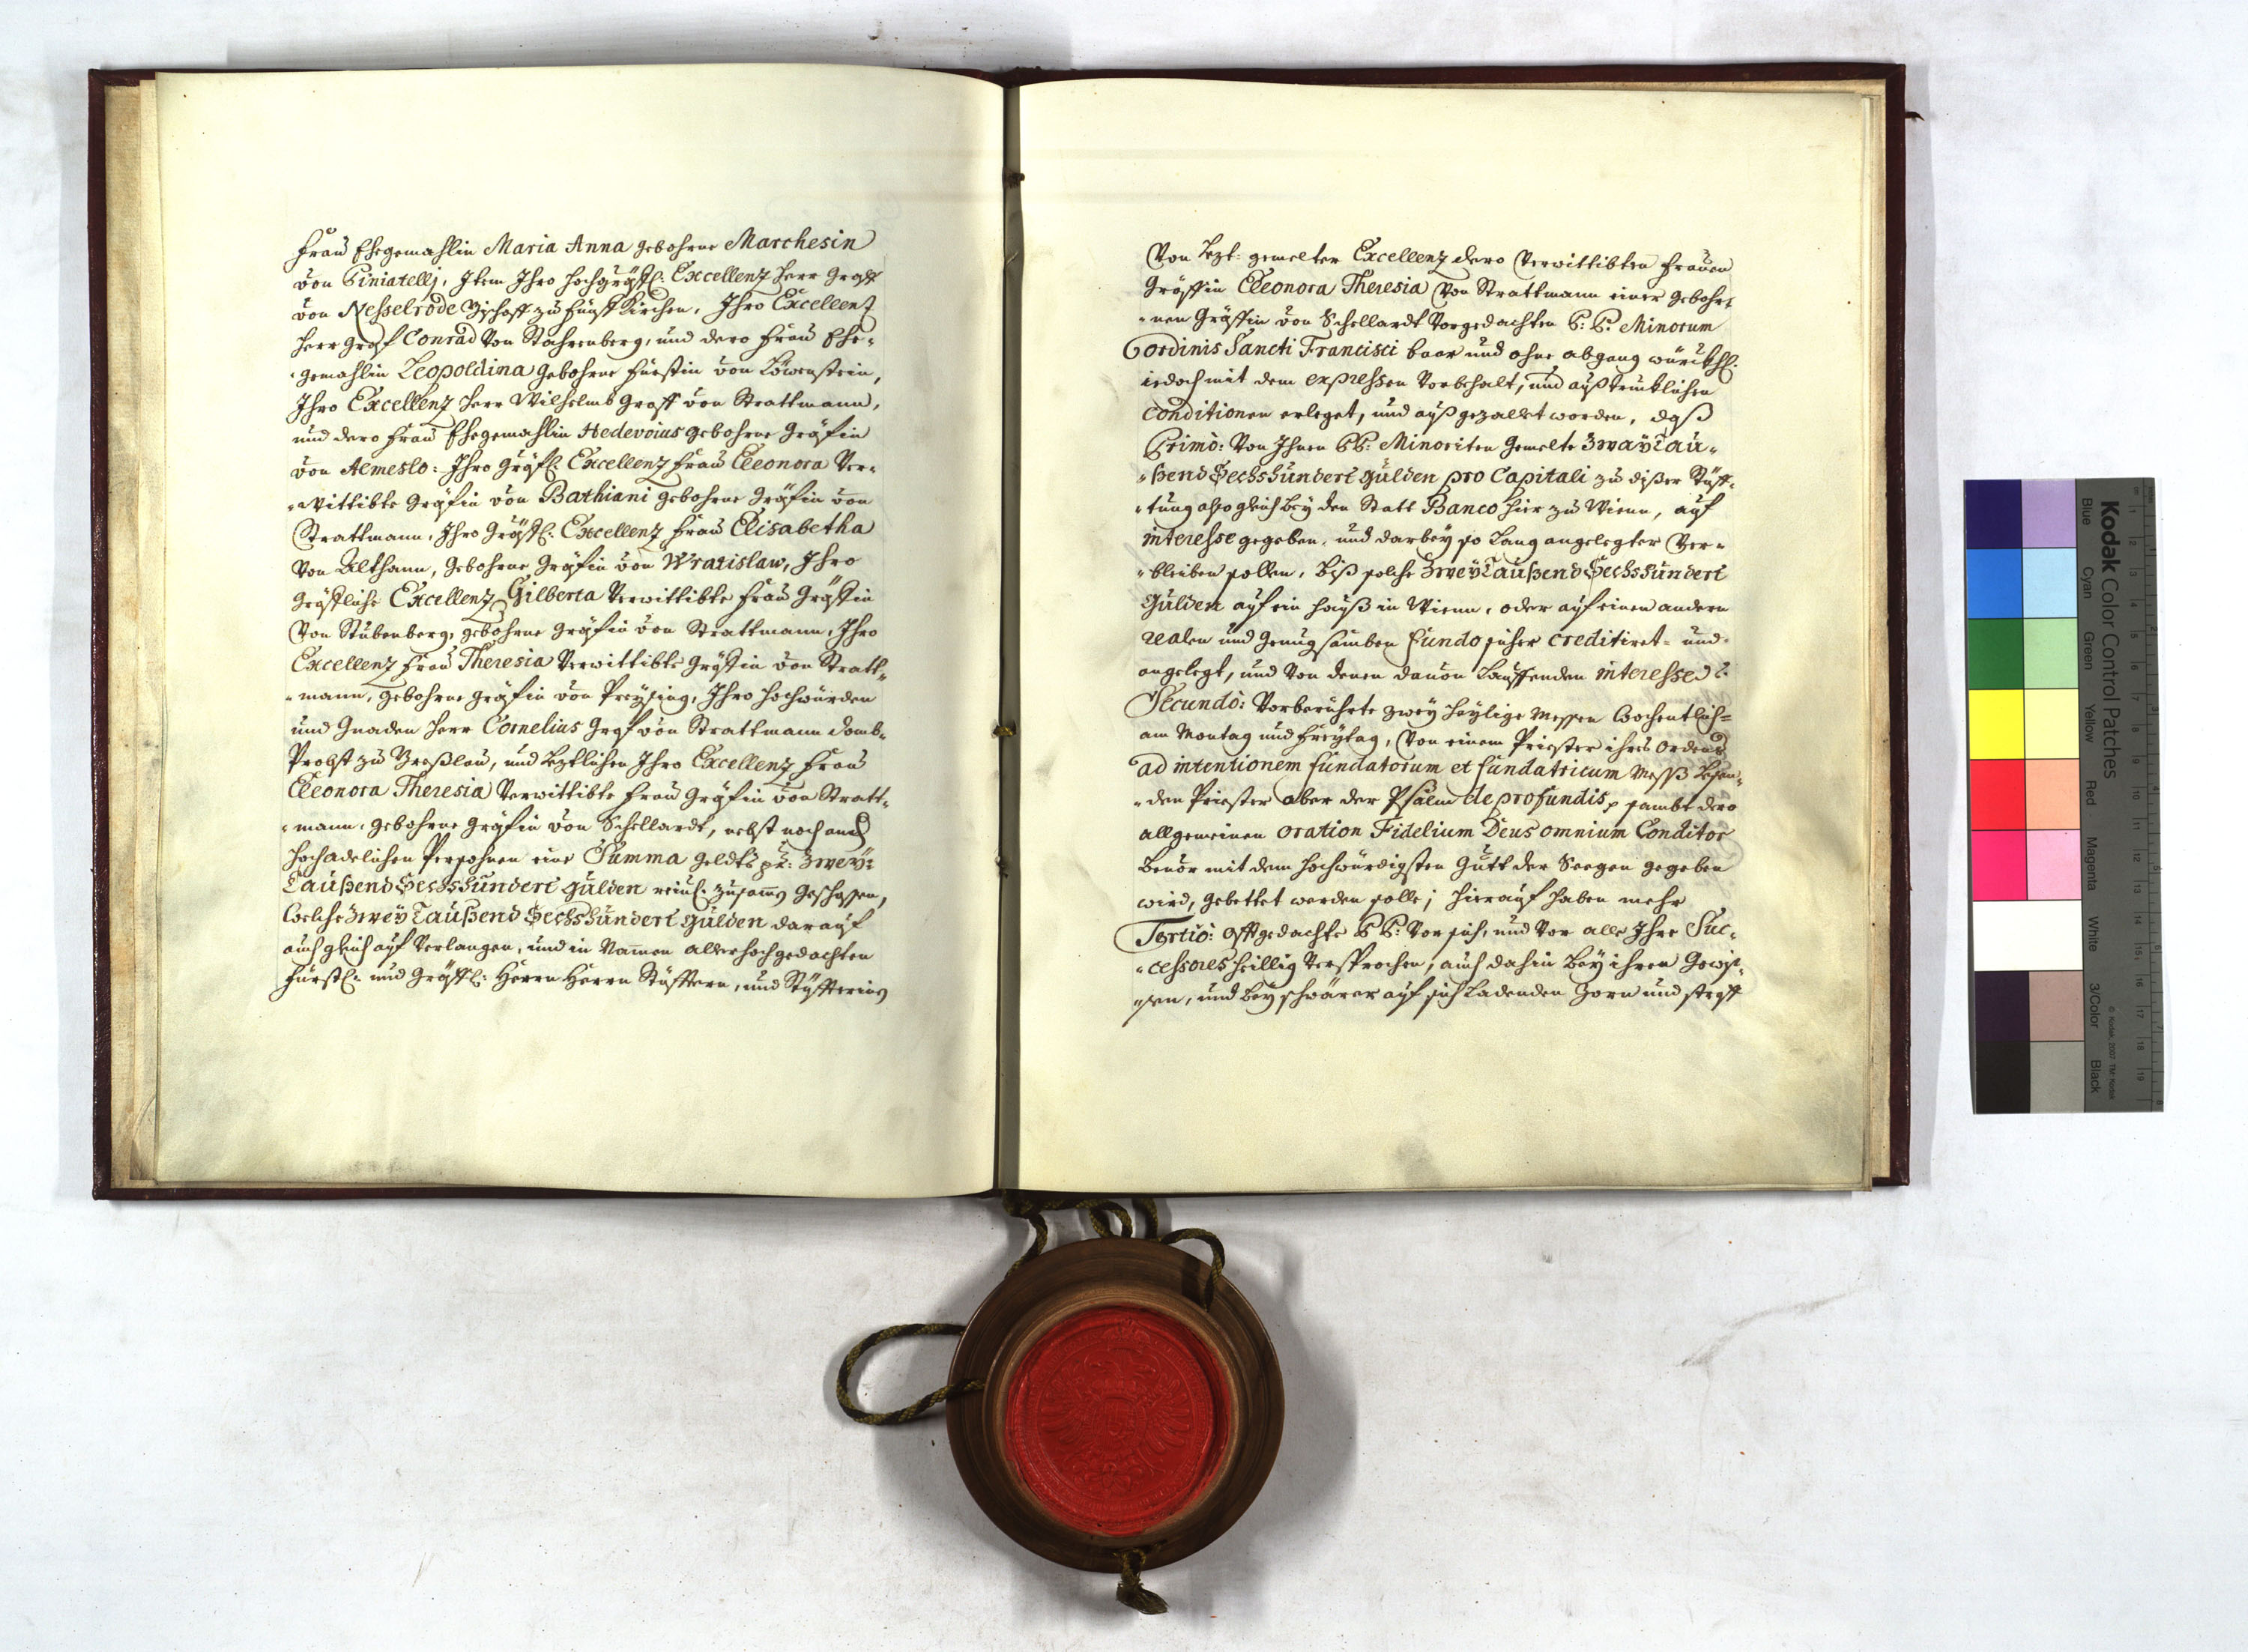 Frau Ehegemahlin Maria Anna gebohrne Marchesin
von Piniatellj, Item Ihro Hochgräffl: Excellenz Herr Graff
von Nesselrode Bischoff zu Fünff Kirchen, Ihro Excellenz
Herr Graf Conrad von Stahrenberg, und dero Frau Ehe-
-gemahlin Leopoldina gebohrne Fürstin von Löwenstein,
Ihro Excellenz Herr Wilhelmb Graff von Strattmann,
und dero Frau Ehegemahlin Hedevoius gebohrne Gräfin
von Almeslo: Ihro Gräfl: Excellenz Frau Eleonora Ver-
-wittibte Gräfin von Bathiani gebohrne Gräfin von
Strattmann, Ihro Gräffl: Excellenz Frau Elisabetha
von Althann, gebohrne Gräfin von Wratislaw, Ihro
Gräffliche Excellenz Gilberta Verwittibte Frau Gräffin
von Stubenberg, gebohrne Gräfin von Strattmann, Ihro
Excellenz Frau Theresia Verwittibte Gräffin von Stratt-
-mann, gebohrne Gräfin von Preysing, Ihro Hochwürden
und Gnaden Herr Cornelius Graf von Strattmann Domb-
Probst zu Breßlau, und Leztlichen Ihro Excellenz Frau
Eleonora Theresia Verwittibte Frau Gräfin von Stratt-
-mann, gebohrne Gräfin von Schellardt, nebst noch andern
Hochadelichen Persohnen eine Summa geldts pr: Zwey-
Taußend Sechshundert Gulden zusam̅ geschossen,
Welche Zwey Taußend Sechshundert Gulden darauf
auch gleich auf Verlangen, und in Nam̅en allerhochgedachten
Fürstl: und Gräffl: Herrn Herrn Stüfftern, und Stüffterins
Von Lezt: gemelter Excellenz dero Verwittibten Frauen
Gräffin Eleonora Theresia Von Strattmann einer gebohr-
-nen Gräffin von Schellardt Vorgedachten P: P: Minorum
Ordinis Sancti Francisci baar und ohne abgang würckhl:
iedoch mit dem expressen Vorbehalt, und außtrucklichen
Conditionen erleget, und auß gezallt worden, daß
Primò: Von Ihnen PP: Minoriten gemelte Zway Tau-
-ßend Sechshundert Gulden pro Capitali zu dißer Stüff-
-tung also gleich bey den Statt Banco hier zu Wienn, auf
interesse gegeben, und darbey so Lang angelegter Ver-
-bleiben sollen, biß solche Zwey Taußend Sechshundert
Gulden auf ein Hauß in Wienn, oder auf einen andern
realen und genugsamben fundo sicher creditiret- und
angelegt, und Von denen dauon Lauffenden interesse
Secundò: Vorberührte zwey Heylige Messen Wochentlich
am Montag und Freytag, Von einem Priester ihres Ordens
ad intentionem fundatorum et fundatricum Meß Lesen-
-den Priester aber der Psalm de profundis, sambt dero
allgemeinen oration Fidelium Deus omnium Conditor
beuor mit dem Hochwürdigsten Gutt der Seegen gegeben
wird, gebettet werden solle; Hierauf haben mehr
Tertiò: Offtgedachte PP: Vor sich, und Vor alle Ihre Suc-
-cessores heillig Versprochen, auch dahin bey ihren Gewiß-
-sen, und bey schwärer auf sich Ladenden Zorn und straff
Kodak Color Control Patches
Blue Cyan Green Yellow Red Magenta White 3/Color Black
© Kodak, 2007 TM: Kodak